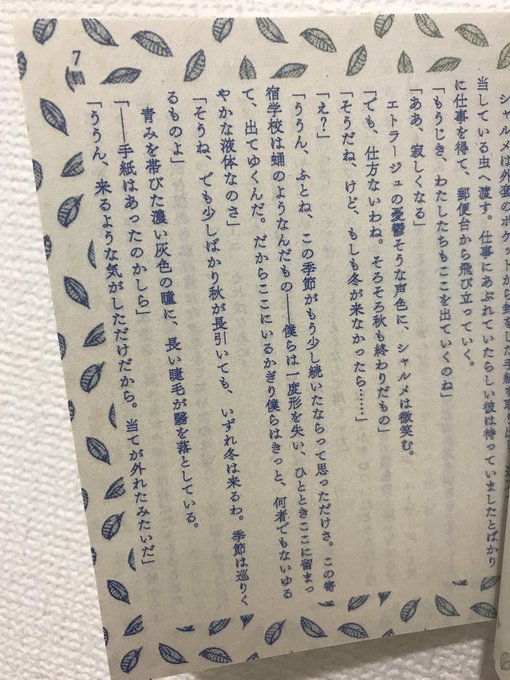 シャルメは外套のポケットから封をした手紙を取り出し、
当している虫へ渡す。仕事にあぶれていたらしい彼は待っていましたとばかり
に仕事を得て、郵便台から飛び立っていく。
「もうじき、わたしたちもここを出ていくのね」
「ああ、寂しくなる」
エトラージュの憂鬱そうな声色に、シャルメは微笑む。
「でも、仕方ないわね。そろそろ秋も終わりだもの」
「そうだね、けど、もしも冬が来なかったら……」
「え?」
「ううん、ふとね、この季節がもう少し続いたならって思っただけさ。この寄
宿学校は蛹のようなんだもの――僕らは一度形を失い、ひとときここに留まっ
て、出てゆくんだ。だからここにいるかぎり僕らはきっと、何者でもないゆる
やかな液体なのさ」
「そうね、でも少しばかり秋が長引いても、いずれ冬は来るわ。季節は巡りく
るものよ」
青みを帯びた濃い灰色の瞳に、長い睫毛が翳を落としている。
「――手紙はあったのかしら」
「ううん、来るような気がしただけだから。当てが外れたみたいだ」
7